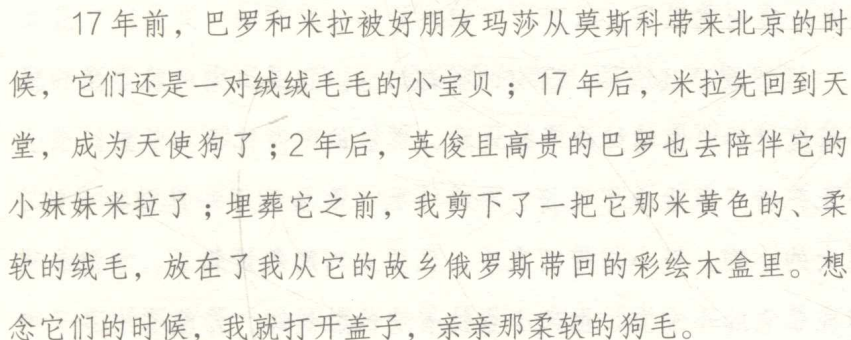 17年前，巴罗和米拉被好朋友玛莎从莫斯科带来北京的时
候，它们还是一对绒绒毛毛的小宝贝；17年后，米拉先回到天
堂，成为天使狗了；2年后，英俊且高贵的巴罗也去陪伴它的
小妹妹米拉了；埋葬它之前，我剪下了一把它那米黄色的、柔
软的绒毛，放在了我从它的故乡俄罗斯带回的彩绘木盒里。想
念它们的时候，我就打开盖子，亲亲那柔软的狗毛。